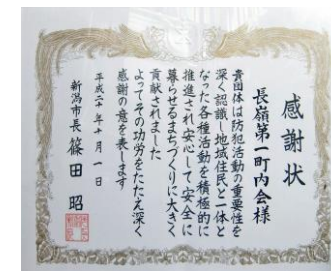 感謝状
長嶺第一町内会様
貴団体は防犯活動の重要性を
深く認識し地域住民と一体と
なった各種活動を積極的に
推進され安心して安全に
暮らせるまちづくりに大きく
貢献されました
よってその功労をたたえ深く
感謝の意を表します
平成二十年十月一日
新潟市長 篠田 昭